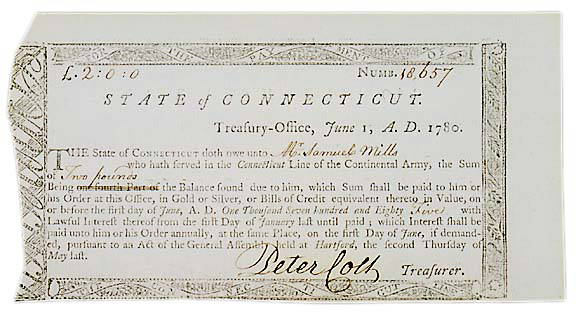 FOR THE PAYMENT OF
£. 2:0:0 NUMB. 18,657
STATE of CONNECTICUT.
Treasury-Office, June 1, A. D. 1780.
THE State of CONNECTICUT doth owe unto Mr. Samuel Mills
who hath served in the Connecticut Line of the Continental Army, the Sum
of Two pounds
Being one fourth Part of the Balance found due to him, which Sum shall be paid to him or
his Order at this Office, in Gold or Silver, or Bills of Credit equivalent thereto in Value, on
or before the first Day of June, A. D. One Thousand Seven Hundred and Eighty Five with
Lawful Interest thereof from the first Day of January last until paid; which Interest shall be
paid unto him or his Order annually, at the same Place, on the first Day of June, if demand-
ed, pursuant to an Act of the General Assembly held at Hartford, the second Thursday of
May last.
Peter Colt Treasurer.